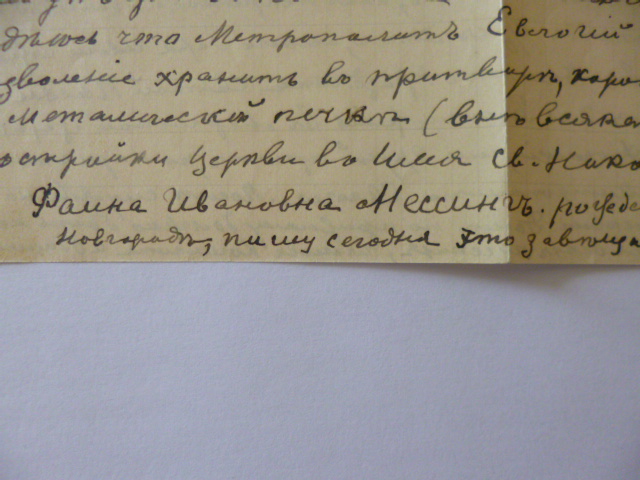 дѣюсь что Митрополитъ Евлогій
зволеніе хранить въ притворѣ, коро
металической печки (внѣ всяка
остройки Церкви во Имя Св. Нико
Фаина Ивановна Мессингъ. рожде
Новгородѣ, пишу сегодня это завѣща